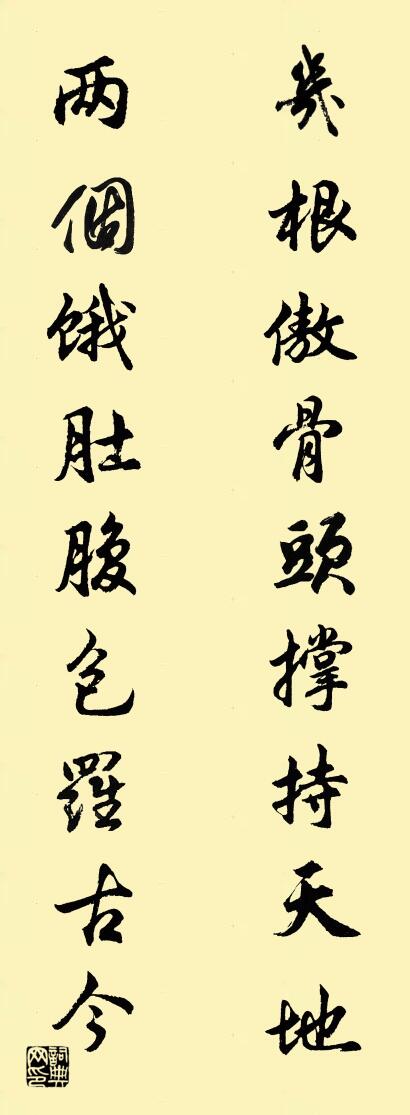 幾根傲骨頭撐持天地
两個餓肚腹包羅古今
詞典网印